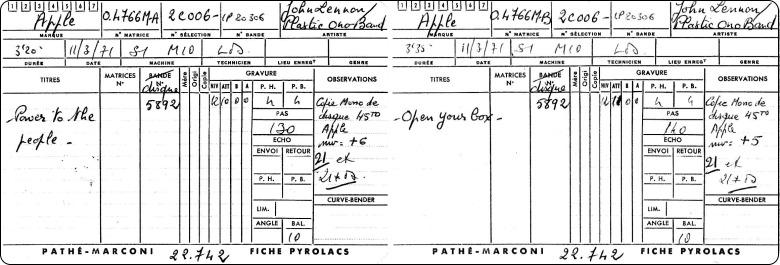 1 2 3 4 5 6 7
Apple
0.4766M-A
2C006-
LP20306
John Lennon/
Plastic Ono Band
MARQUE
N° MATRICE
N° SÉLECTION
N° BANDE
ARTISTE
3'20"
11/3/71
S1
M10
DURÉE
DATE
MACHINE
TECHNICIEN
LIEU ENREGT
GENRE
TITRES
MATRICES N°
BANDE N°
disque
Mère
Origi
Copie
GRAVURE
NIV ATT B A
P. H. P. B.
OBSERVATIONS
5892
12 10 0 0
4 4
Power to the
people -
PAS
130
ECHO
ENVOI RETOUR
P. H. P. B.
LIM.
ANGLE BAL.
10
Copie Mono de
disque 45TD
Apple
niv = +6
21 et
CURVE-BENDER
PATHÉ-MARCONI
22.742
FICHE PYROLACS
1 2 3 4 5 6 7
Apple
0.4766MB
2C006-
LP20306
John Lennon/
Plastic Ono Band
MARQUE
N° MATRICE
N° SÉLECTION
N° BANDE
ARTISTE
3'35"
11/3/71
S1
M10
DURÉE
DATE
MACHINE
TECHNICIEN
LIEU ENREGT
GENRE
TITRES
MATRICES N°
BANDE N°
disque
Mère
Origi
Copie
GRAVURE
NIV ATT B A
P. H. P. B.
OBSERVATIONS
5892
0 0
4 4
- Open your box -
PAS
140
ECHO
ENVOI RETOUR
P. H. P. B.
LIM.
ANGLE BAL.
10
Copie Mono de
disque 45TD
Apple
niv = +5
21 et
CURVE-BENDER
PATHÉ-MARCONI
22.742
FICHE PYROLACS